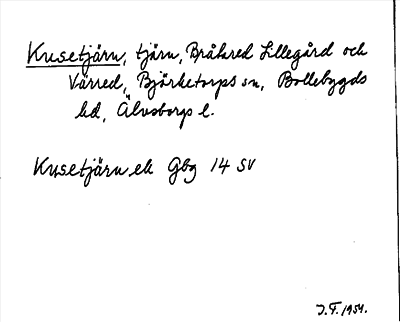 Kusetjärn, tjärn, Bråkred Lillegård och
Värred, Björketorps sn, Bollebygds
hd, Älvsborgs l.
Kusetjärn ek Gbg 14 SV
J.F. 1954.